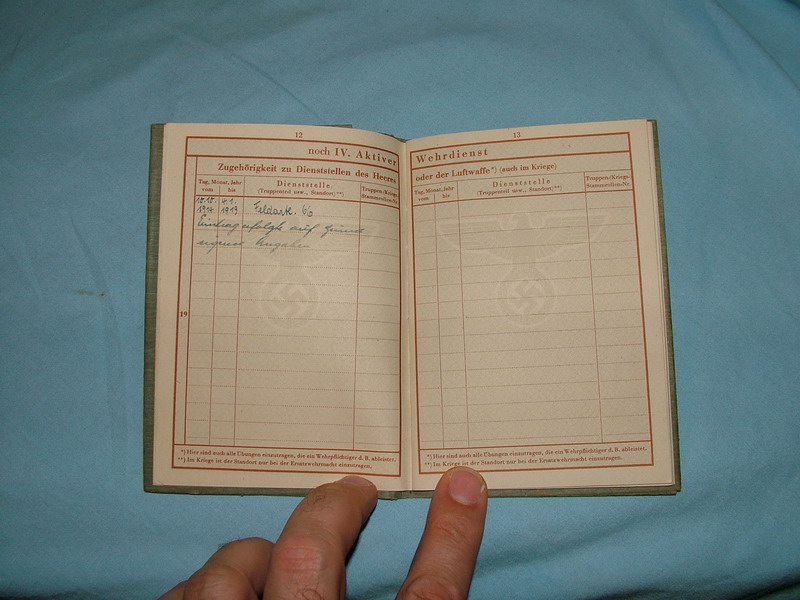 12
noch IV. Aktiver
Zugehörigkeit zu Dienststellen des Heeres
Tag, Monat, Jahr
vom bis
Dienststelle
(Truppenteil usw., Standort) **)
Truppen-/Kriegs-
Stammrollen-Nr.
1914 1919 Feldart. 66
Eintrag erfolgte auf Grund
eigener Angaben
19
*) Hier sind auch alle Übungen einzutragen, die ein Wehrpflichtiger d. B. ableistet.
**) Im Kriege ist der Standort nur bei der Ersatzwehrmacht einzutragen.
13
Wehrdienst
oder der Luftwaffe*) (auch im Kriege)
Tag, Monat, Jahr
vom bis
Dienststelle
(Truppenteil usw., Standort) **)
Truppen-/Kriegs-
Stammrollen-Nr.
*) Hier sind auch alle Übungen einzutragen, die ein Wehrpflichtiger d. B. ableistet.
**) Im Kriege ist der Standort nur bei der Ersatzwehrmacht einzutragen.